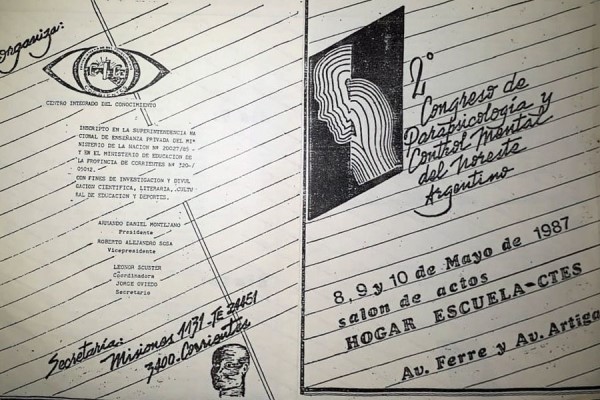 organiza:
CENTRO INTEGRADO DEL CONOCIMIENTO
INSCRIPTO EN LA SUPERINTENDENCIA NA
CIONAL DE ENSEÑANZA PRIVADA DEL MI-
NISTERIO DE LA NACION Nº 20027/85 -
Y EN EL MINISTERIO DE EDUCACION DE
LA PROVINCIA DE CORRIENTES Nº 320-/
05012.
CON FINES DE INVESTIGACION Y DIVUL
GACION CIENTIFICA, LITERARIA, CULTU
RAL DE EDUCACION Y DEPORTES.
ARMANDO DANIEL MONTEJANO
Presidente
ROBERTO ALEJANDRO SOSA
Vicepresidente
LEONOR SCUSTER
Coordinadora
JORGE OVIEDO
Secretario
Secretaría:
Misiones 1131-TE 24451
3400-Corrientes
2º
Congreso de
Parapsicología y
Control Mental
del Noreste
Argentino
8, 9 y 10 de Mayo de 1987
salon de actos
HOGAR ESCUELA-CTES
Av. Ferre y Av. Artiga